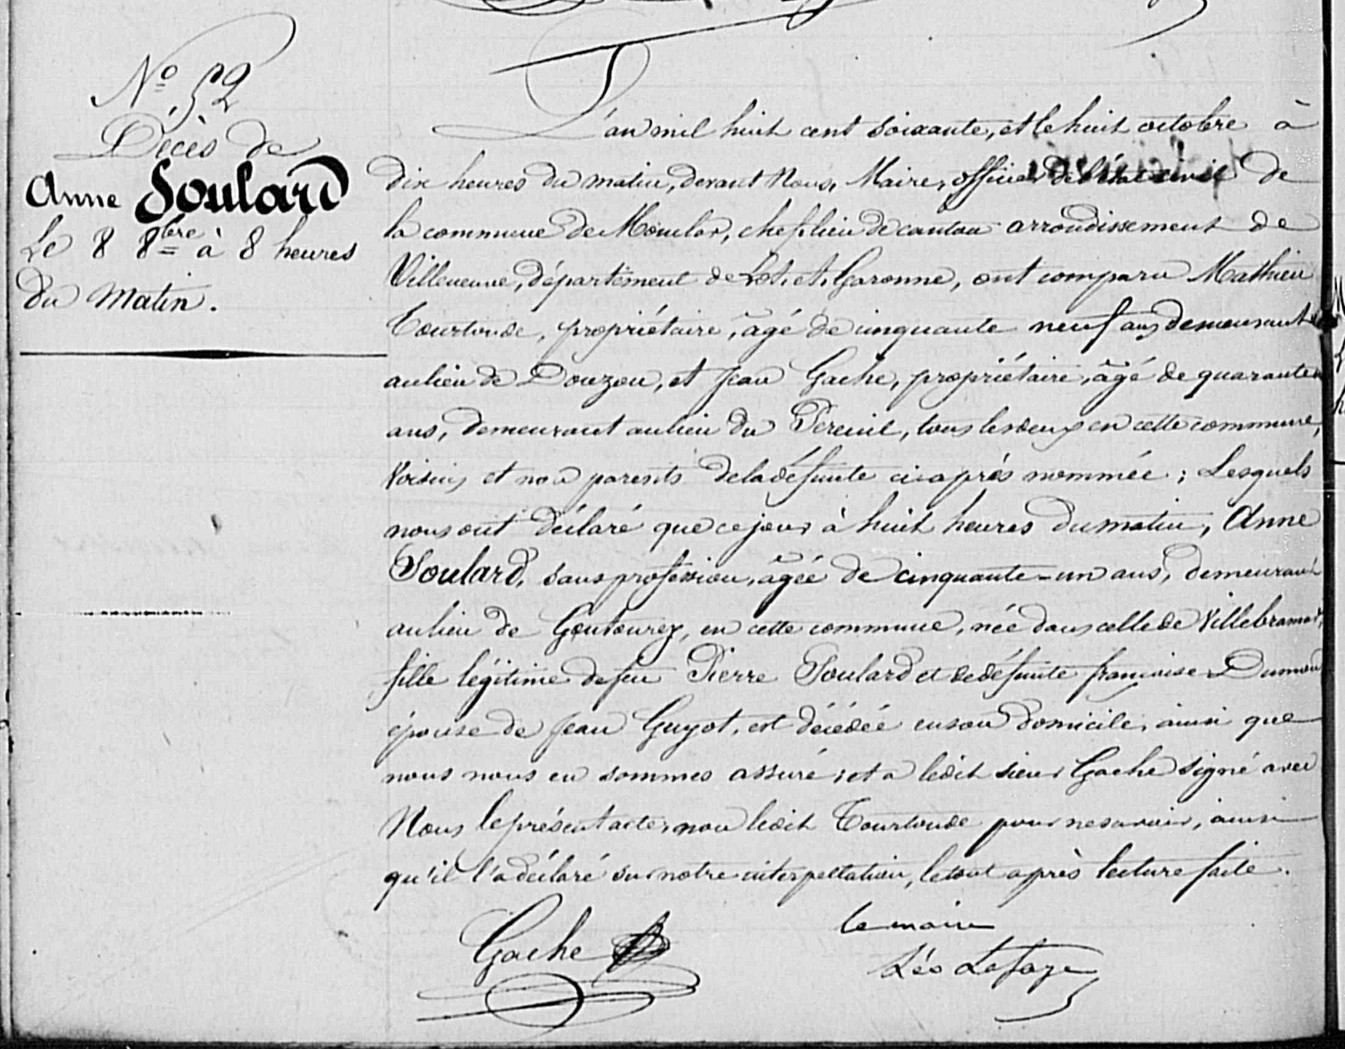 N° 52
Décès de
Anne Soulard
Le 8 8bre à 8 heures
du matin.
L'an mil huit cent soixante, et le huit octobre à
dix heures du matin, devant Nous, Maire, officier de l'état civil de
la commune de Monclar, chef lieu de canton arrondissement de
Villeneuve, département de Lot, et, Garonne, ont comparu Mathieu
Tourtonde, propriétaire, âgé de cinquante neuf ans demeurant
au lieu de Douzou, et Jean Gache, propriétaire, âgé de quarante
ans, demeurant au lieu du Pereuil, tous les deux en cette commune,
voisins et non parents de la défunte ci après nommée ; Lesquels
nous ont déclaré que ce jour à huit heures du matin, Anne
Soulard, sans profession, âgée de cinquante-un ans, demeurant
au lieu de Goutourez, en cette commune, née dans celle de Villebramar,
fille légitime de feu Pierre Soulard et de défunte françoise Dumon
épouse de Jean Guyot, est décédée en son domicile, ainsi que
nous nous en sommes assuré ; et a ledit sieur Gache signé avec
Nous le présent acte, non ledit Tourtonde pour ne savoir, ainsi
qu'il l'a déclaré sur notre interpellation, le tout après lecture faite.
Gache
le maire
Léo Lafage